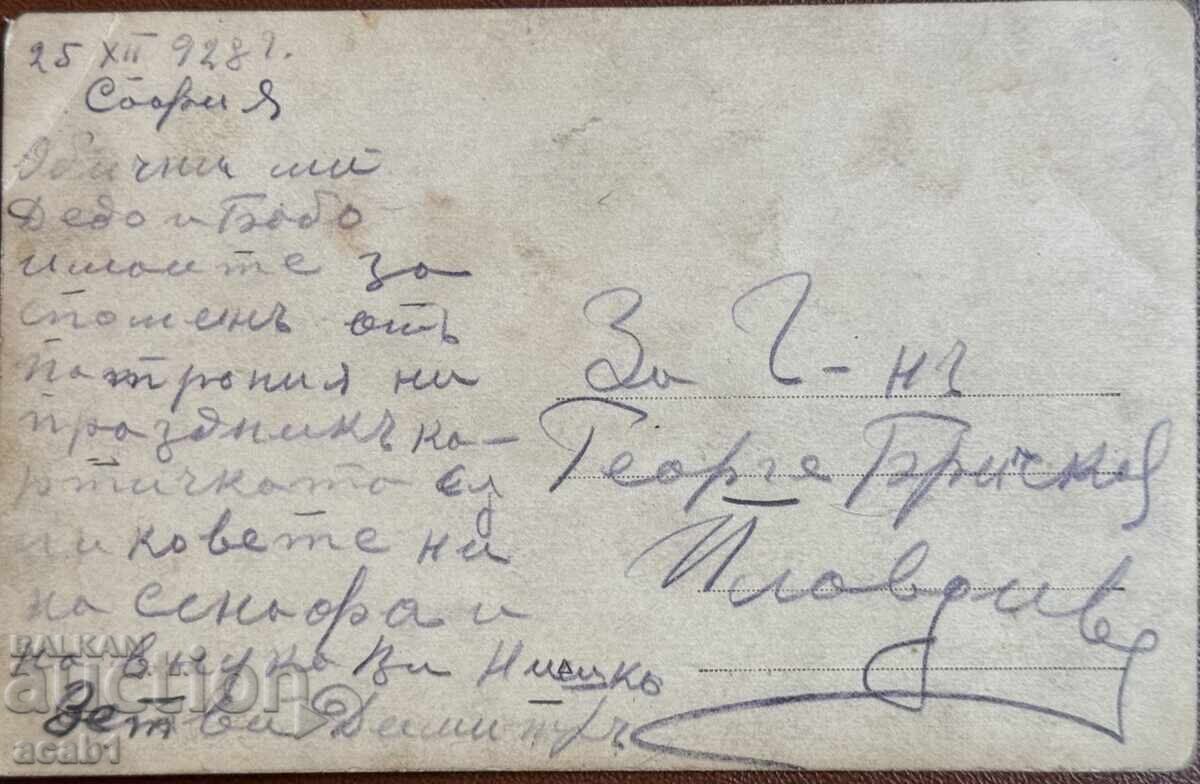 25 XII 928 г.
София
Обични ми
Дедо и Бабо
имайте за
споменъ отъ
патрония ни
празникъ ка-
ртичката с
ликовете ни
на Сенафа и
на внука Ви Нишко
Зет Ви Димитръ
За Г-нъ
Георге Бричков
Пловдив
BALKAN
auction
acab1